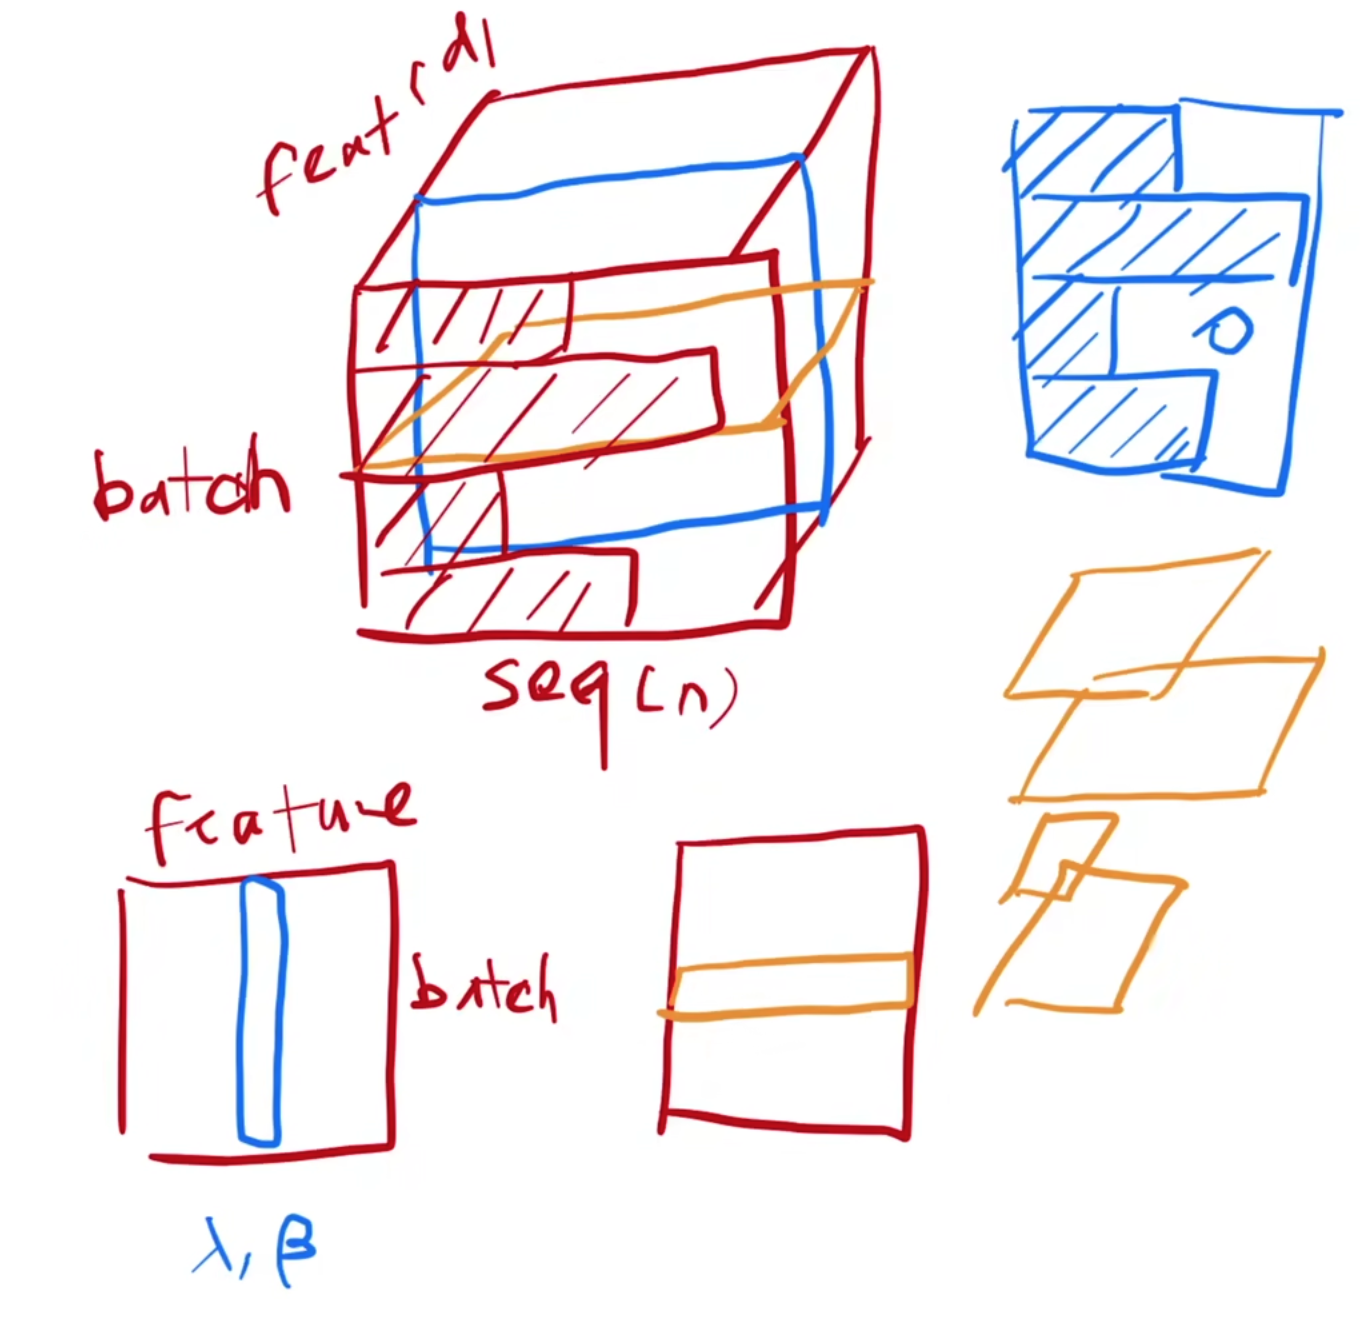 feat (d)
batch
seq (n)
0
feature
batch
λ, β